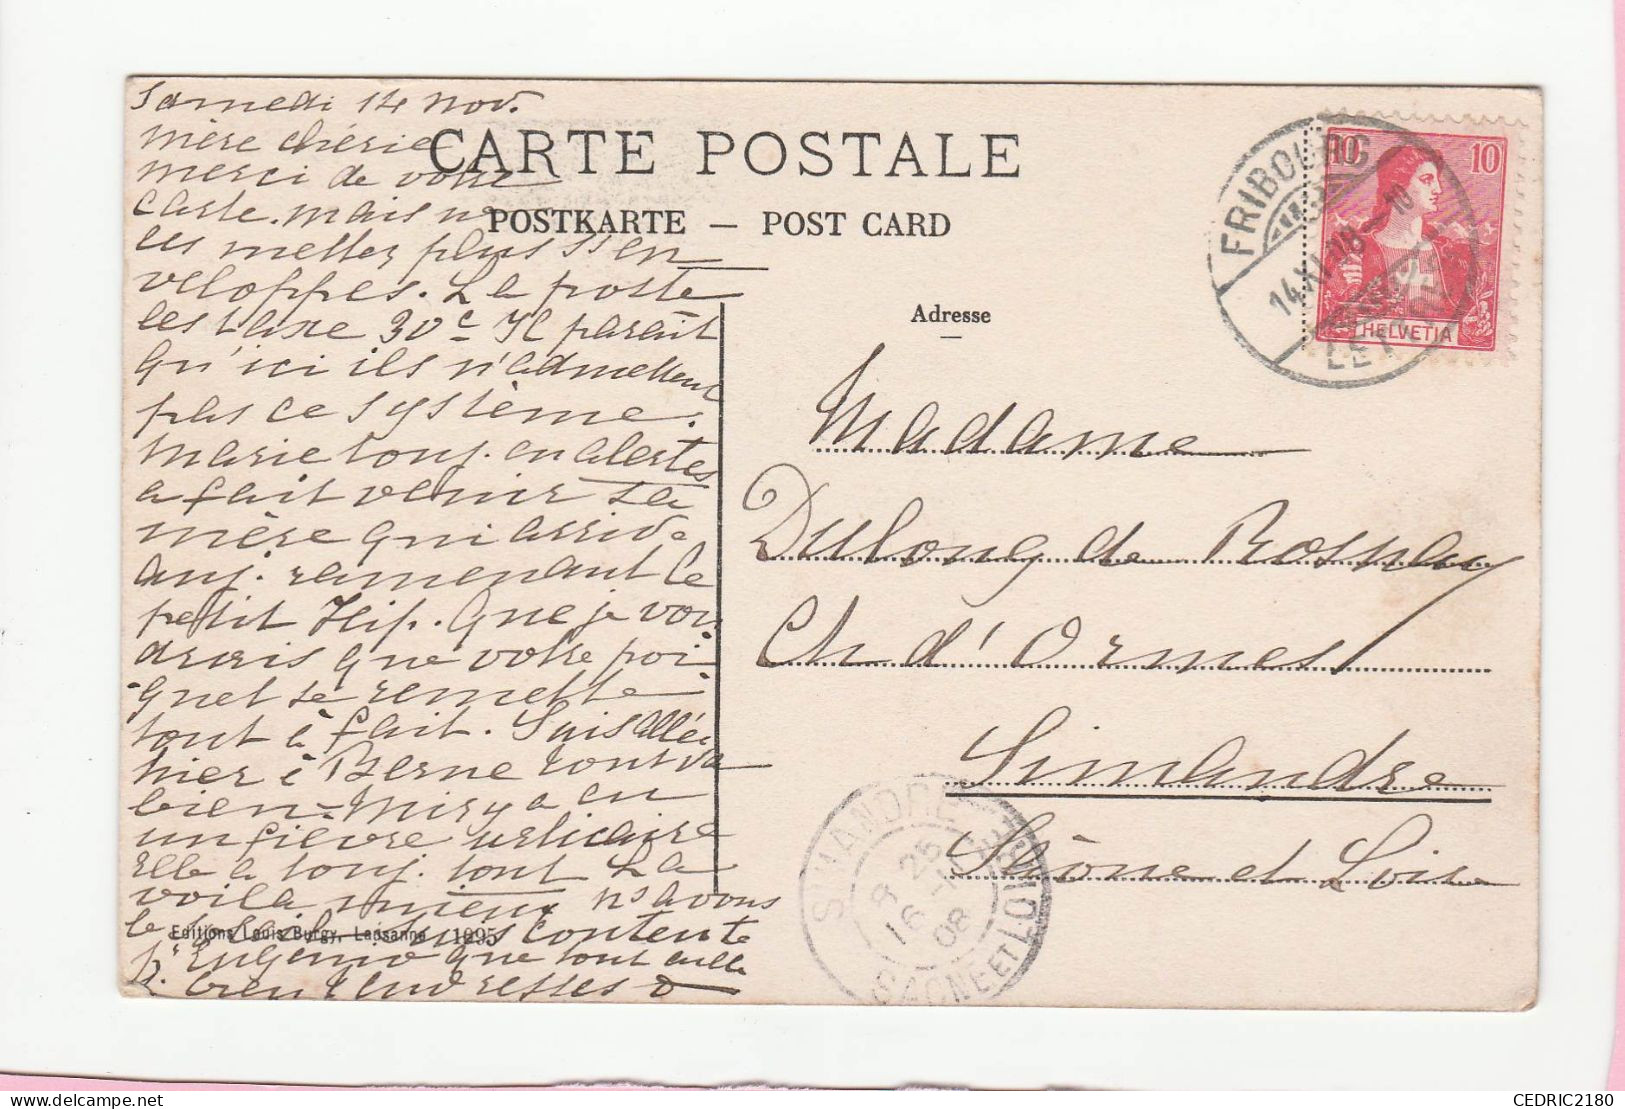 Samedi 14 Nov.
mère chérie
merci de votre
carte. mais ne
les mettez plus ss en
veloppes. La poste
les taxe 30c Il paraît
qu'ici ils n'admettent
pas ce système.
Marie touj. en alertes
a fait venir sa
mère qui arrive
auj. ramenant le
petit Hip. Que je vou
drais que votre poi
gnet se remette
tout à fait. Suis allée
hier à Berne tout va
bien - Miry a eu
un fièvre urticaire
elle a touj. tout La
voilà mieux ns avons
le soleil suis contente
pr Eugénio que tout aille
bien
CARTE POSTALE
POSTKARTE – POST CARD
Adresse
Madame
Dulong de Rosnay
Ch d'Ormes
Simandre
Saône et Loire
Editions Louis Burgy, Lausanne 1995
FRIBOURG
14.XI.08.–10
LETTR.
10
10
HELVETIA
SIMANDRE
8 25
16 -11
08
SAONE ET LOIRE
CEDRIC2180
delcampe.net